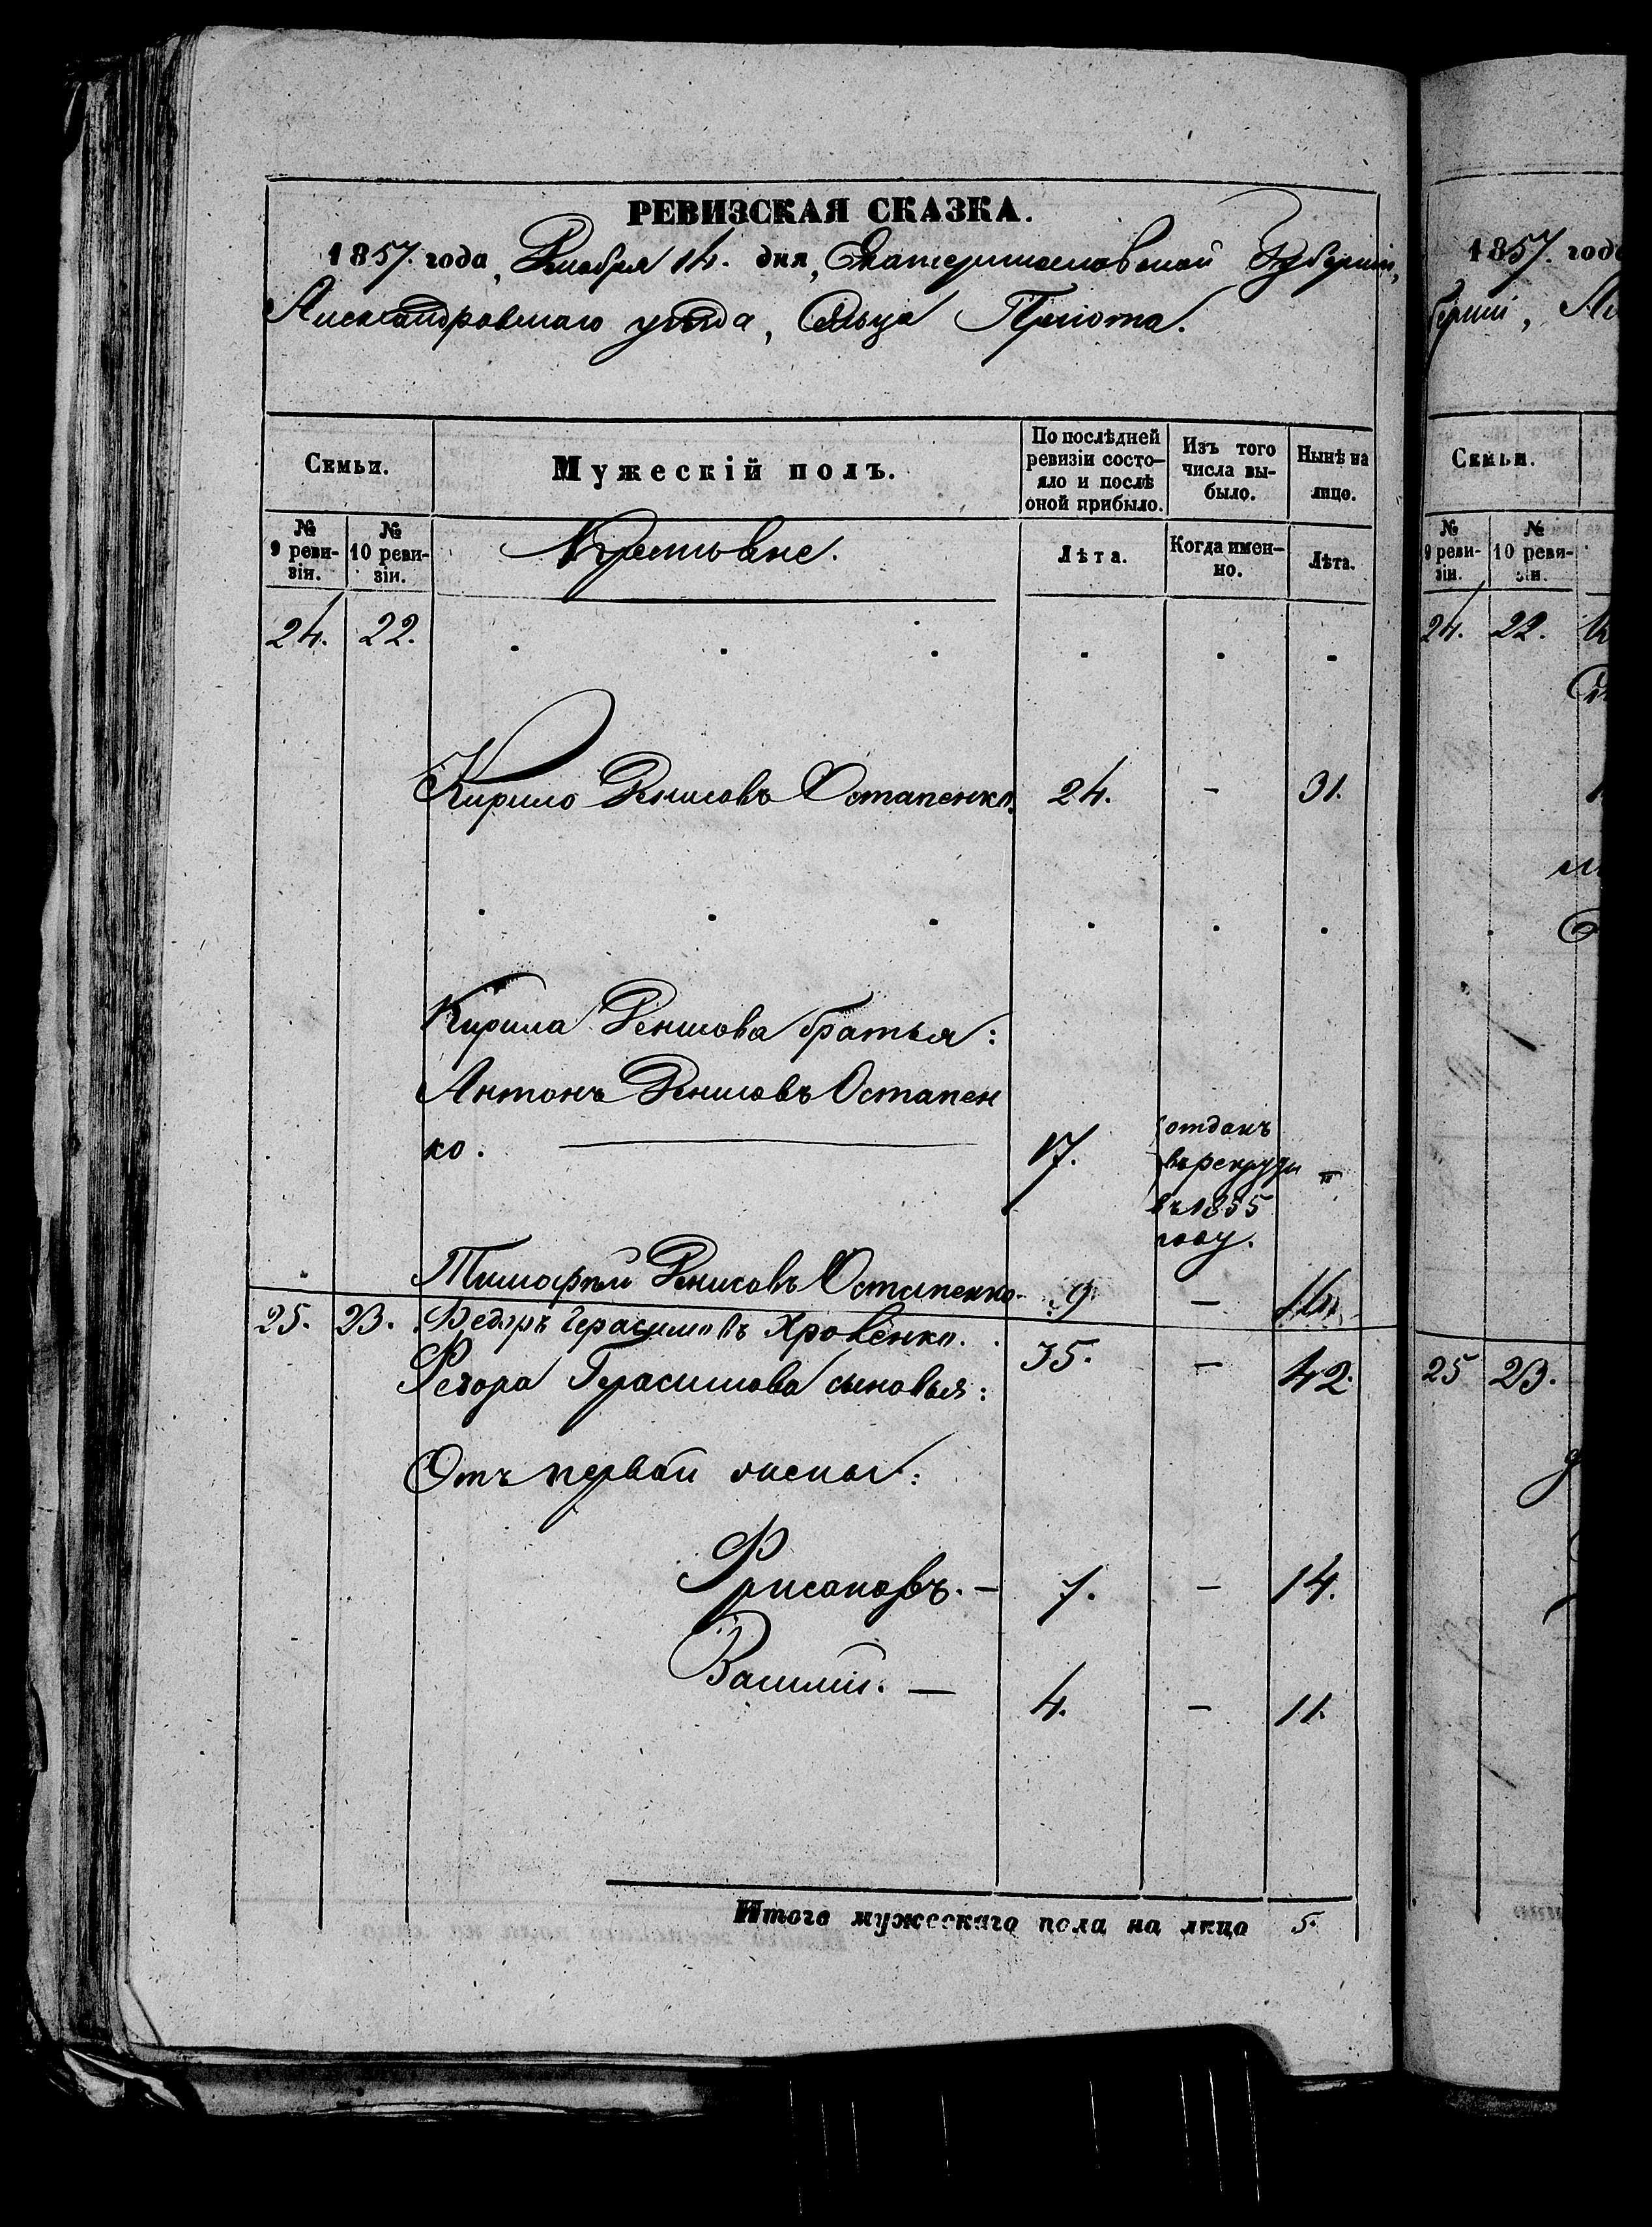 РЕВИЗСКАЯ СКАЗКА.
1857. года, Декабря 14. дня, Екатеринославской Губерніи,
Александровскаго уѣзда, Сельца Пріюта.
Семьи.
Мужескій полъ.
По послѣдней ревизіи состо-
яло и послѣ
оной прибыло.
Изъ того
числа вы-
было.
Нынѣ на
лицо.
№
9 реви-
зіи.
№
10 реви-
зіи.
Крестьяне.
Лѣта.
Когда имен-
но.
Лѣта.
24. 22.
Кирило Денисовъ Остапенко. 24. - 31.
Кирила Денисова братья:
Антонъ Денисовъ Остапен
ко. 17. отданъ
въ рекруты -
въ 1855
году.
Тимофѣй Денисовъ Остапенко 9. -
25. 23. Федоръ Герасимовъ Яровенко. 35. - 42.
Федора Герасимова сыновья:
Отъ первой жены:
7. - 14.
Василій. - 4. - 11.
Итого мужескаго пола на лицо 5.
1857. года
берніи,
Семьи.
№
9 реви-
зіи.
№
10 реви-
зіи.
24. 22.
25 23.